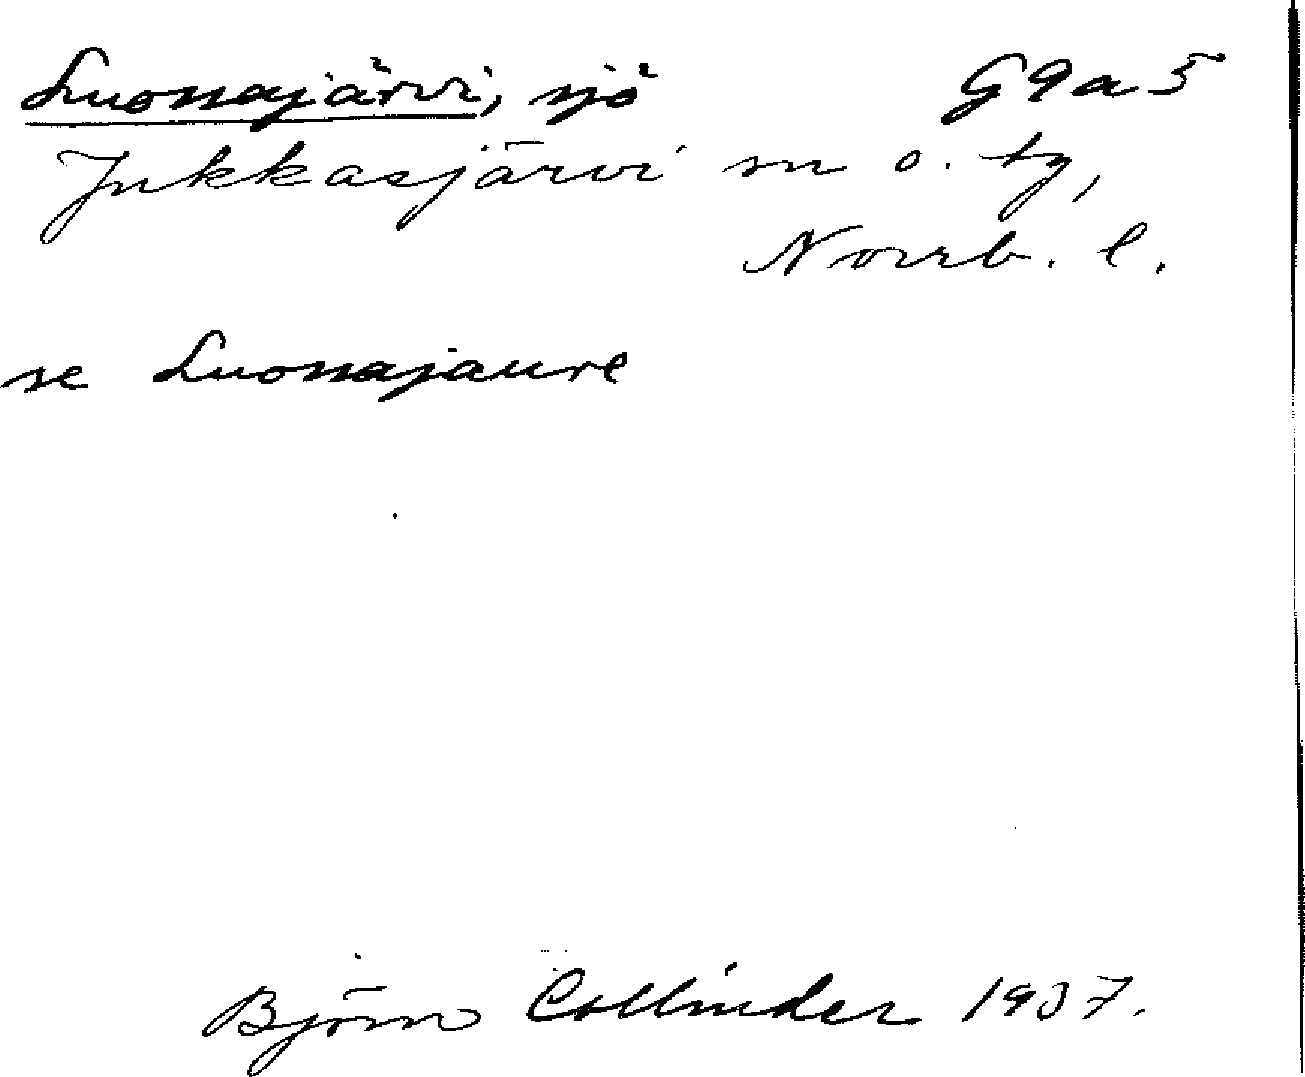 Luossajärvi, sjö G9a5
Jukkasjärvi sn o. tg,
Norrb. l.
se Luossajaure
Björn Collinder 1937.